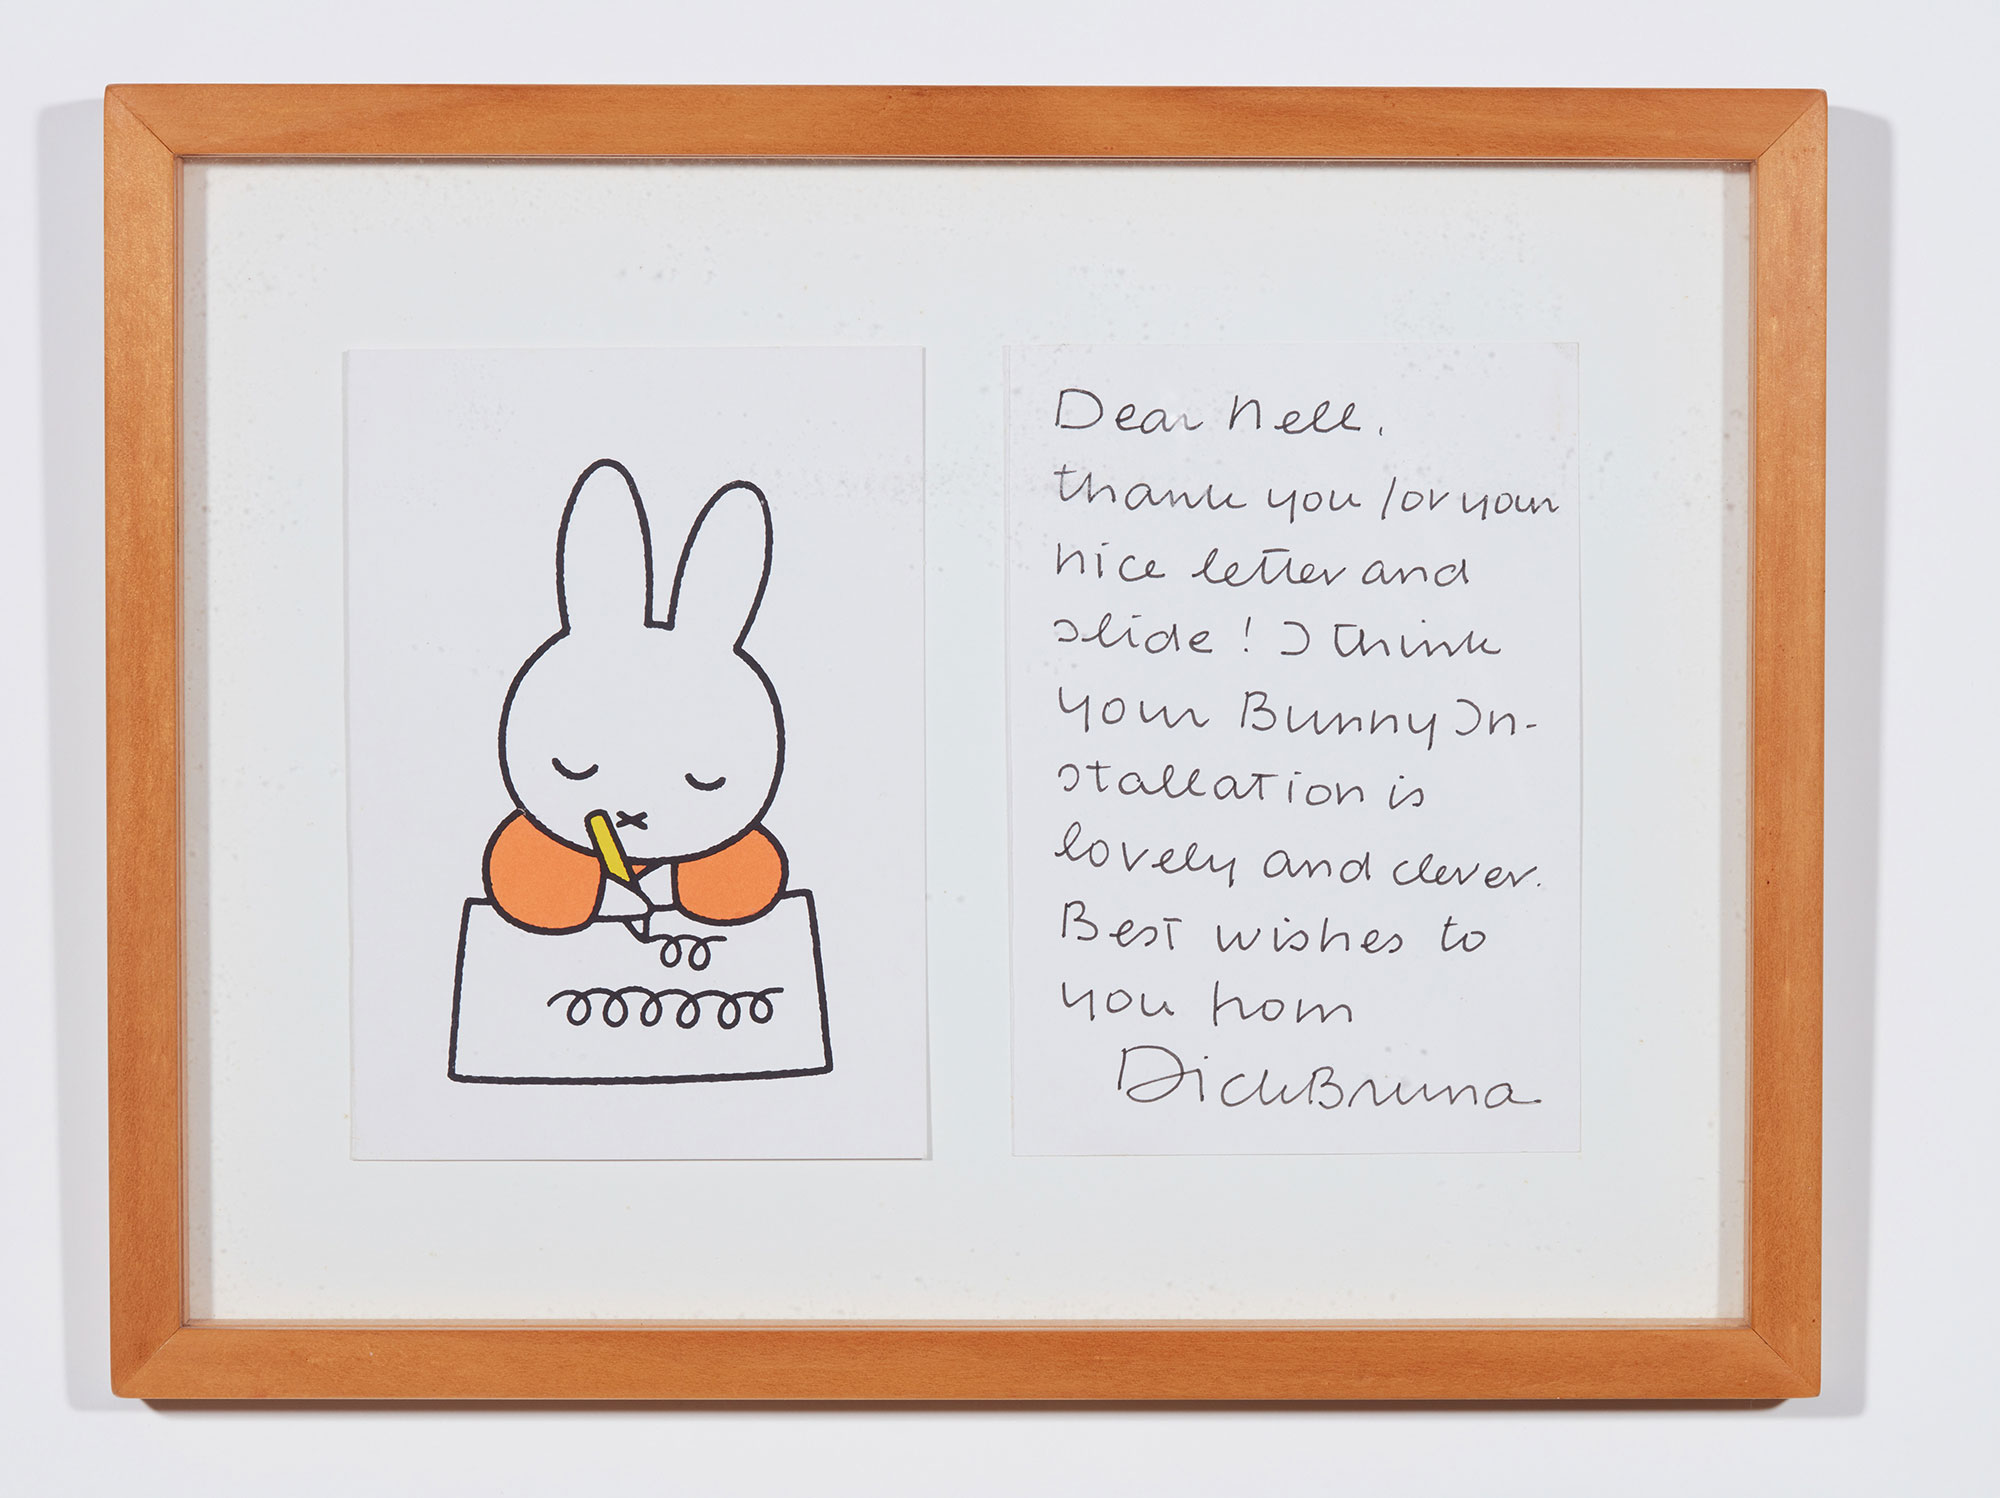 Dear Nell,
thank you for your
nice letter and
slide! I think
your Bunny In-
stallation is
lovely and clever.
Best wishes to
you from
Dick Bruna